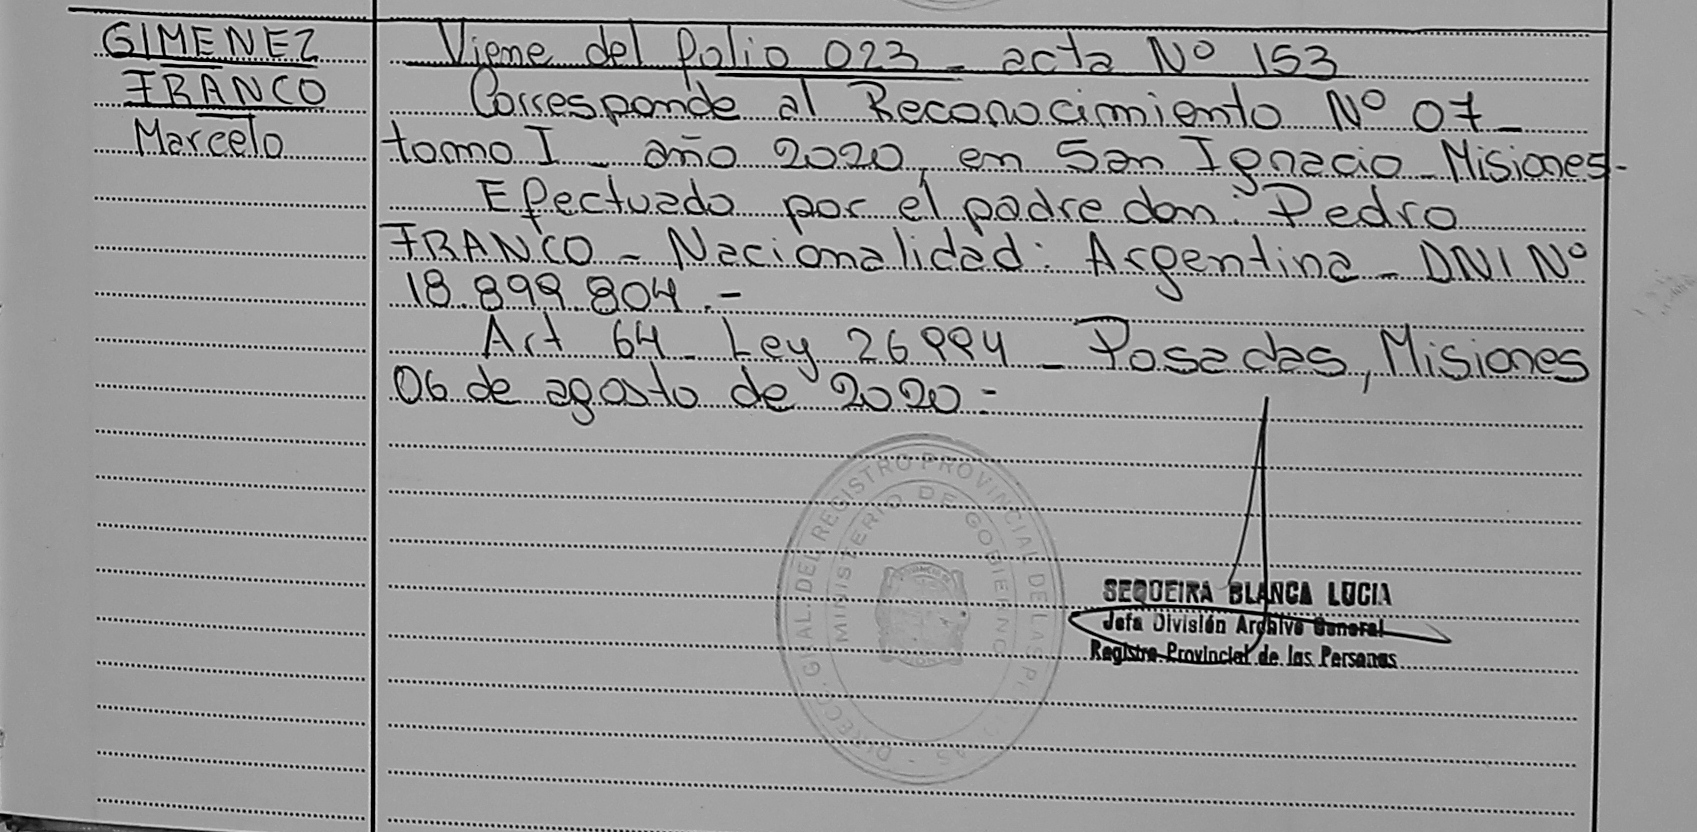 GIMENEZ
FRANCO
Marcelo
Viene del folio 023 - acta Nº 153
Corresponde al Reconocimiento Nº 07 -
tomo I - año 2020, en San Ignacio - Misiones -
Efectuado por el padre don: Pedro
FRANCO - Nacionalidad: Argentina - DNI Nº
18.899.804.-
Art 64 - Ley 26994 - Posadas, Misiones
06 de agosto de 2020 =
DIRECC. GRAL. DEL REGISTRO PROVINCIAL DE LAS PERSONAS
MINISTERIO DE GOBIERNO
SEQUEIRA BLANCA LUCIA
Jefa División Archivo General
Registro Provincial de las Personas